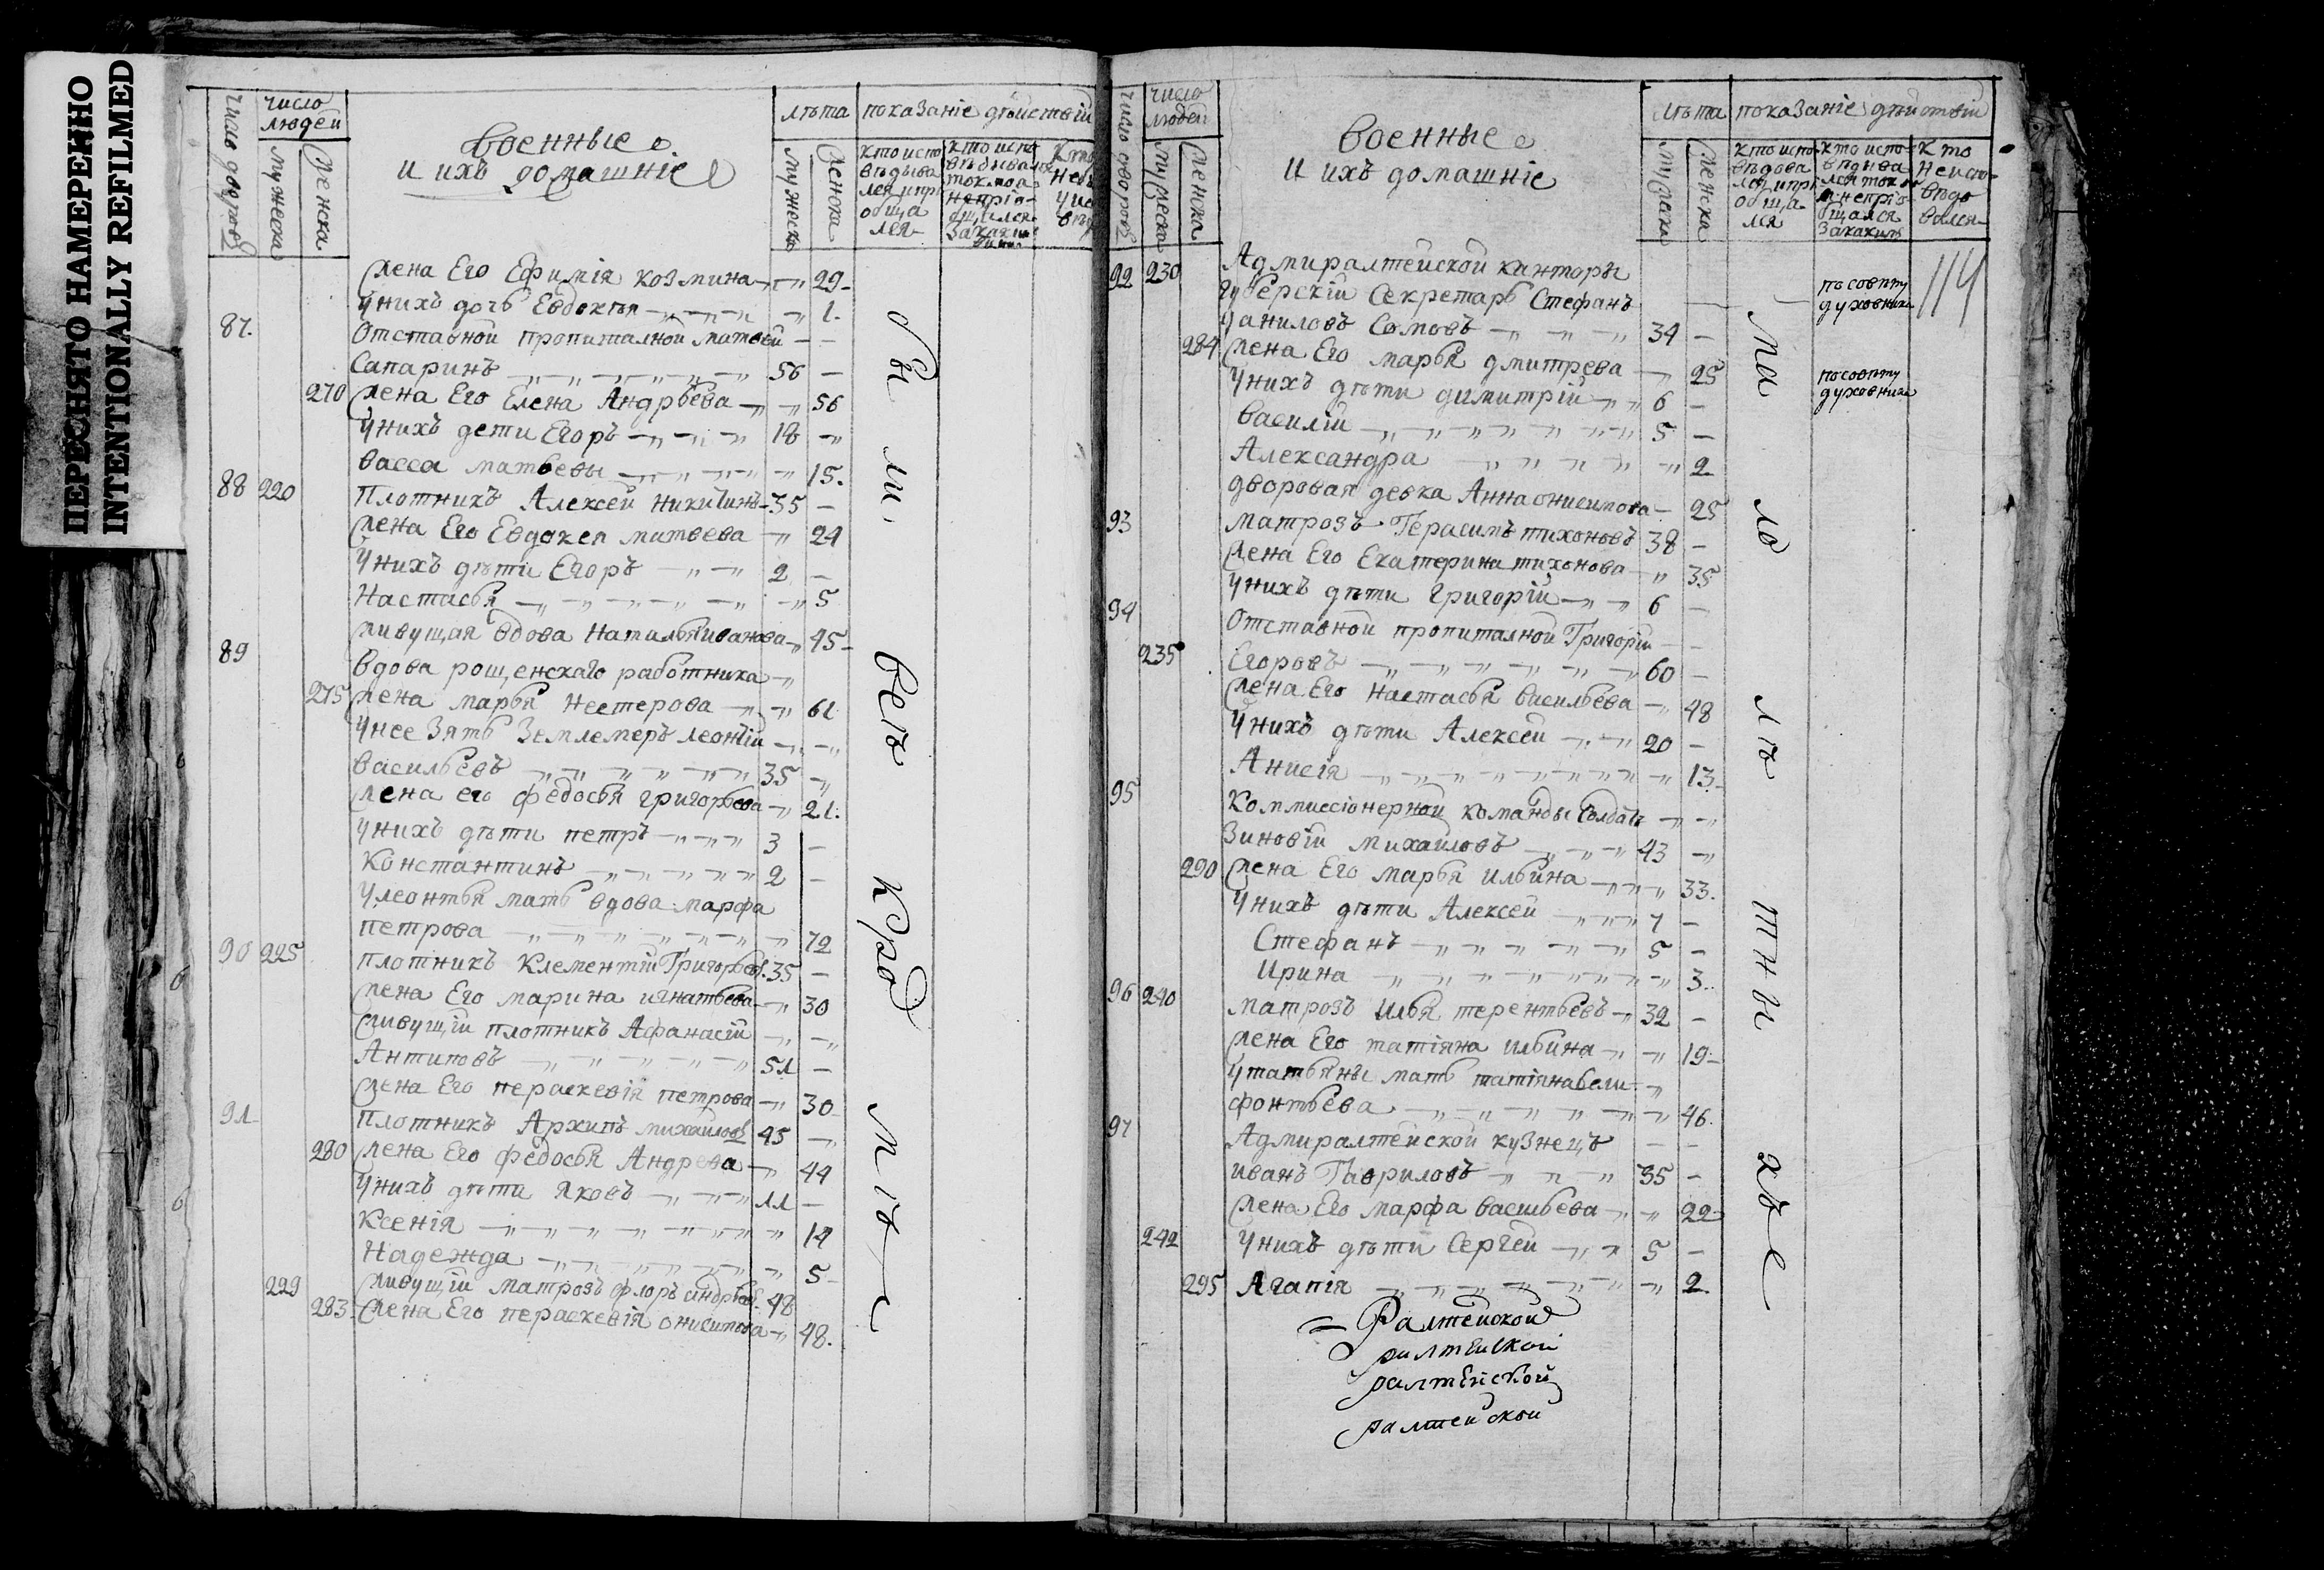 ПЕРЕСНЯТО НАМЕРЕННО
INTENTIONALLY REFILMED
число дворовъ
число людей
мужеска
женска
военные
и ихъ домашніе
лѣта
мужеска
женска
показаніе дѣйствій
кто исповѣдыва лся и при обща лся
кто испо вѣдывался токмо а не пріо бщался
жена Его Ефимія козмина 29
у нихъ дочь Евдокія 1.
87. Отставной пропиталной матвей
Сапаринъ 56
270 жена Его Елена Андрѣева 56
у нихъ дети Егоръ 18
васса матвевы 15.
88 220 Плотникъ Алексей никитинъ 35
жена Его Евдокея матвева 24
у нихъ дѣти Егоръ 2
Настасья 5
живущая вдова Наталья иванова 45
89 вдова рощенскаго работника
275 жена марья нестерова 61
у нее зять землемеръ леонтiй
васильевъ 35
жена его федосья григорьева 21.
у нихъ дѣти петръ 3
константинъ 2
у леонтья мать вдова марфа
петрова 72
90 225 плотникъ Клементій Григорьев. 35
жена Его марина игнатьева 30
живущій плотникъ Афанасій
Антиповъ 51
жена Его параскевія петрова 30
91 плотникъ Архипъ михайловъ 45
280 жена Его федосья Андрева 44
у нихъ дѣти Яковъ 11
Ксенія 14
Надежда 5
229 живущій матрозъ флоръ андрѣев. 48
283 жена Его параскевія онисимова 48.
были всѣ кромѣ
число дворовъ
число людей
мужеска
женска
военные
и ихъ домашніе
лѣта
мужеска
женска
показаніе дѣйствій
кто испо вѣдова лся и прі обща лся
кто испо вѣдыва лся токмо а не прiо бщался
Кто не испо вѣдо вался
114
92 230 Адмиралтейской канторы
Губерскій Секретарь Стефанъ по совѣту духовника
Даниловъ Сомовъ 34
284 жена Его марья дмитрева 25 по совѣту духовника
у нихъ дѣти димитрій 6
василій 5
Александра 2
дворовая девка Анна онисимова 25
93 матрозъ Герасимъ тихоновъ 38
жена Его Екатерина тихонова 35
у нихъ дѣти григорій 6
94 Отставной пропиталной Григорiй
235 Егоровъ 60
жена Его Настасья васильева 48
у нихъ дѣти Алексей 20
Анисія 13.
95 Коммиссіонерной команды солдатъ
Зиновій михайловъ 43
290 жена Его марья ильина 33.
у нихъ дѣти Алексей 7
Стефанъ 5
Ирина 3.
96 240 матрозъ илья терентьевъ 32
жена Его татіяна ильина 19
у татьяны мать татіяна ѯели
фонтьева 46.
97 Адмиралтейской кузнецъ
иванъ Гавриловъ 35
жена Его марфа васильева 22
242 у нихъ дѣти Сергей 5
295 Агапія 2.
малолѣтныхъ
Ралтейской
ралтейской
ралтейской
ралтейской